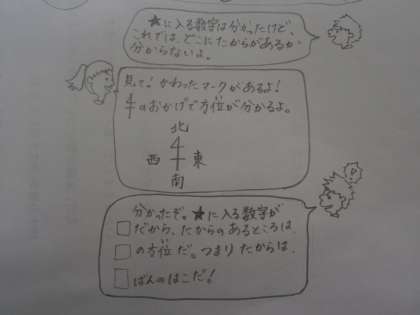 ★に入る数字は分かったけど、
これでは、どこにたからがあるか
分からないよ。
見て!かわったマークがあるよ!
のおかげで方位が分かるよ。
北
西 東
南
分かったぞ。★に入る数字が
□だから、たからのあるところは、
□の方位だ。つまりたからは、
□ばんのはこだ!